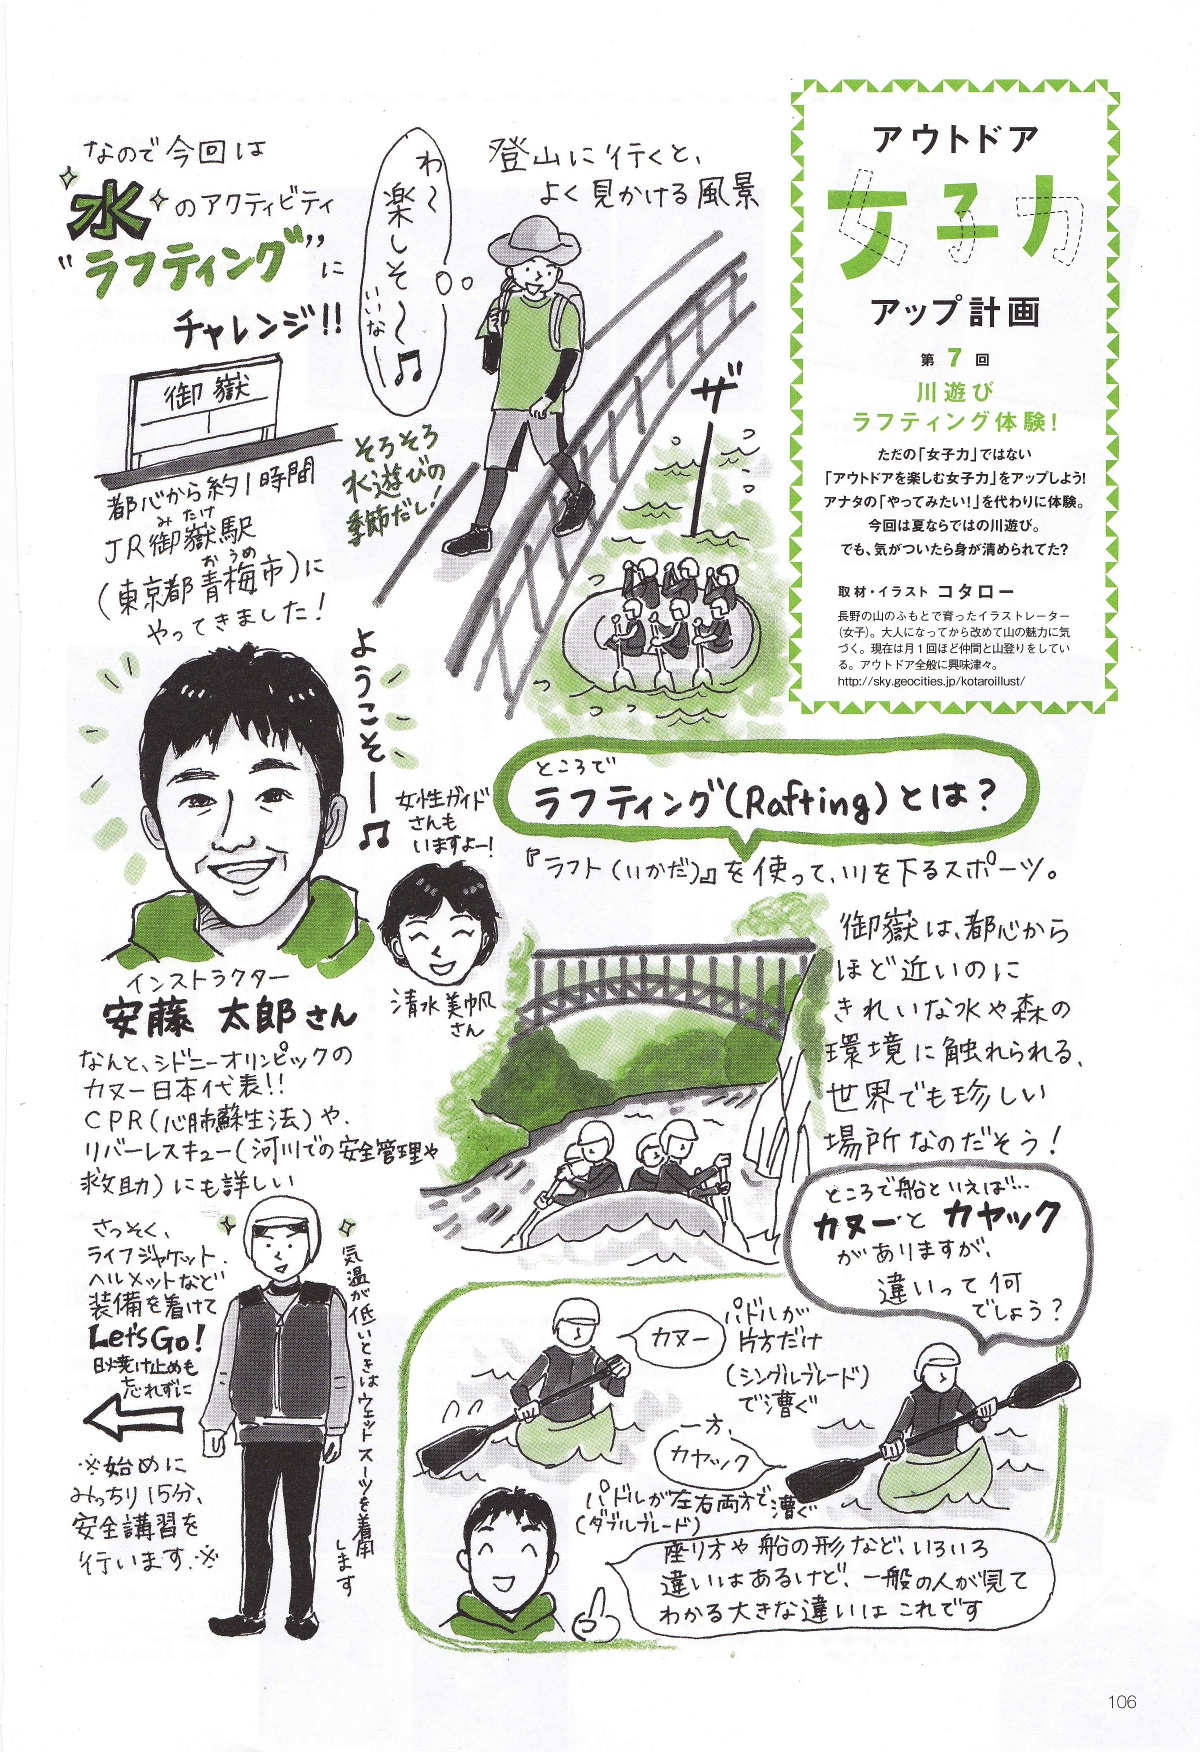 アウトドア
女子力
アップ計画
第7回
川遊び
ラフティング体験!
ただの「女子力」ではない
「アウトドアを楽しむ女子力」をアップしよう!
アナタの「やってみたい!」を代わりに体験。
今回は夏ならではの川遊び。
でも、気がついたら身が清められてた?
取材・イラスト コタロー
長野の山のふもとで育ったイラストレーター
(女子)。大人になってから改めて山の魅力に気
づく。現在は月1回ほど仲間と山登りをしてい
る。アウトドア全般に興味津々。
http://sky.geocities.jp/kotaroillust/
登山に行くと、
よく見かける風景
わ〜
楽しそ〜
いいな♫
ザー
そろそろ
水遊びの
季節だし!
なので今回は
水のアクティビティ
"ラフティング"に
チャレンジ!!
御嶽
都心から約1時間
みたけ
JR御嶽駅
おうめ
(東京都青梅市)に
やってきました!
ようこそー♫
女性ガイド
さんも
いますよー!
清水美帆
さん
インストラクター
安藤 太郎さん
なんと、シドニーオリンピックの
カヌー日本代表!!
CPR(心肺蘇生法)や、
リバーレスキュー(河川での安全管理や
救助)にも詳しい
ところで
ラフティング(Rafting)とは?
『ラフト(いかだ)』を使って、川を下るスポーツ。
御嶽は、都心から
ほど近いのに
きれいな水や森の
環境に触れられる、
世界でも珍しい
場所なのだそう!
さっそく、
ライフジャケット、
ヘルメットなど
装備を着けて
Let's Go!
日焼け止めも
忘れずに
気温が低いときはウェットスーツを着用
します
※始めに
みっちり15分、
安全講習を
行います。※
ところで船といえば…
カヌーとカヤック
がありますが、
違いって何
でしょう?
カヌー
パドルが
片方だけ
(シングルブレード)
で漕ぐ
一方、
カヤック
パドルが左右両方で漕ぐ
(ダブルブレード)
座り方や船の形など、いろいろ
違いはあるけど、一般の人が見て
わかる大きな違いはこれです
106